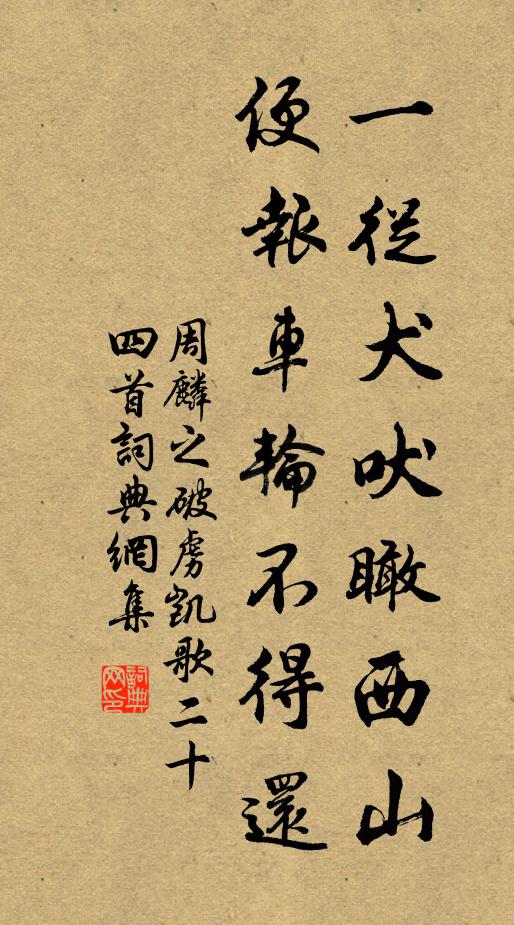 一從犬吠瞰西山
便報車輪不得還
周麟之破虜凱歌二十
四首詞典網集
詞典
网印